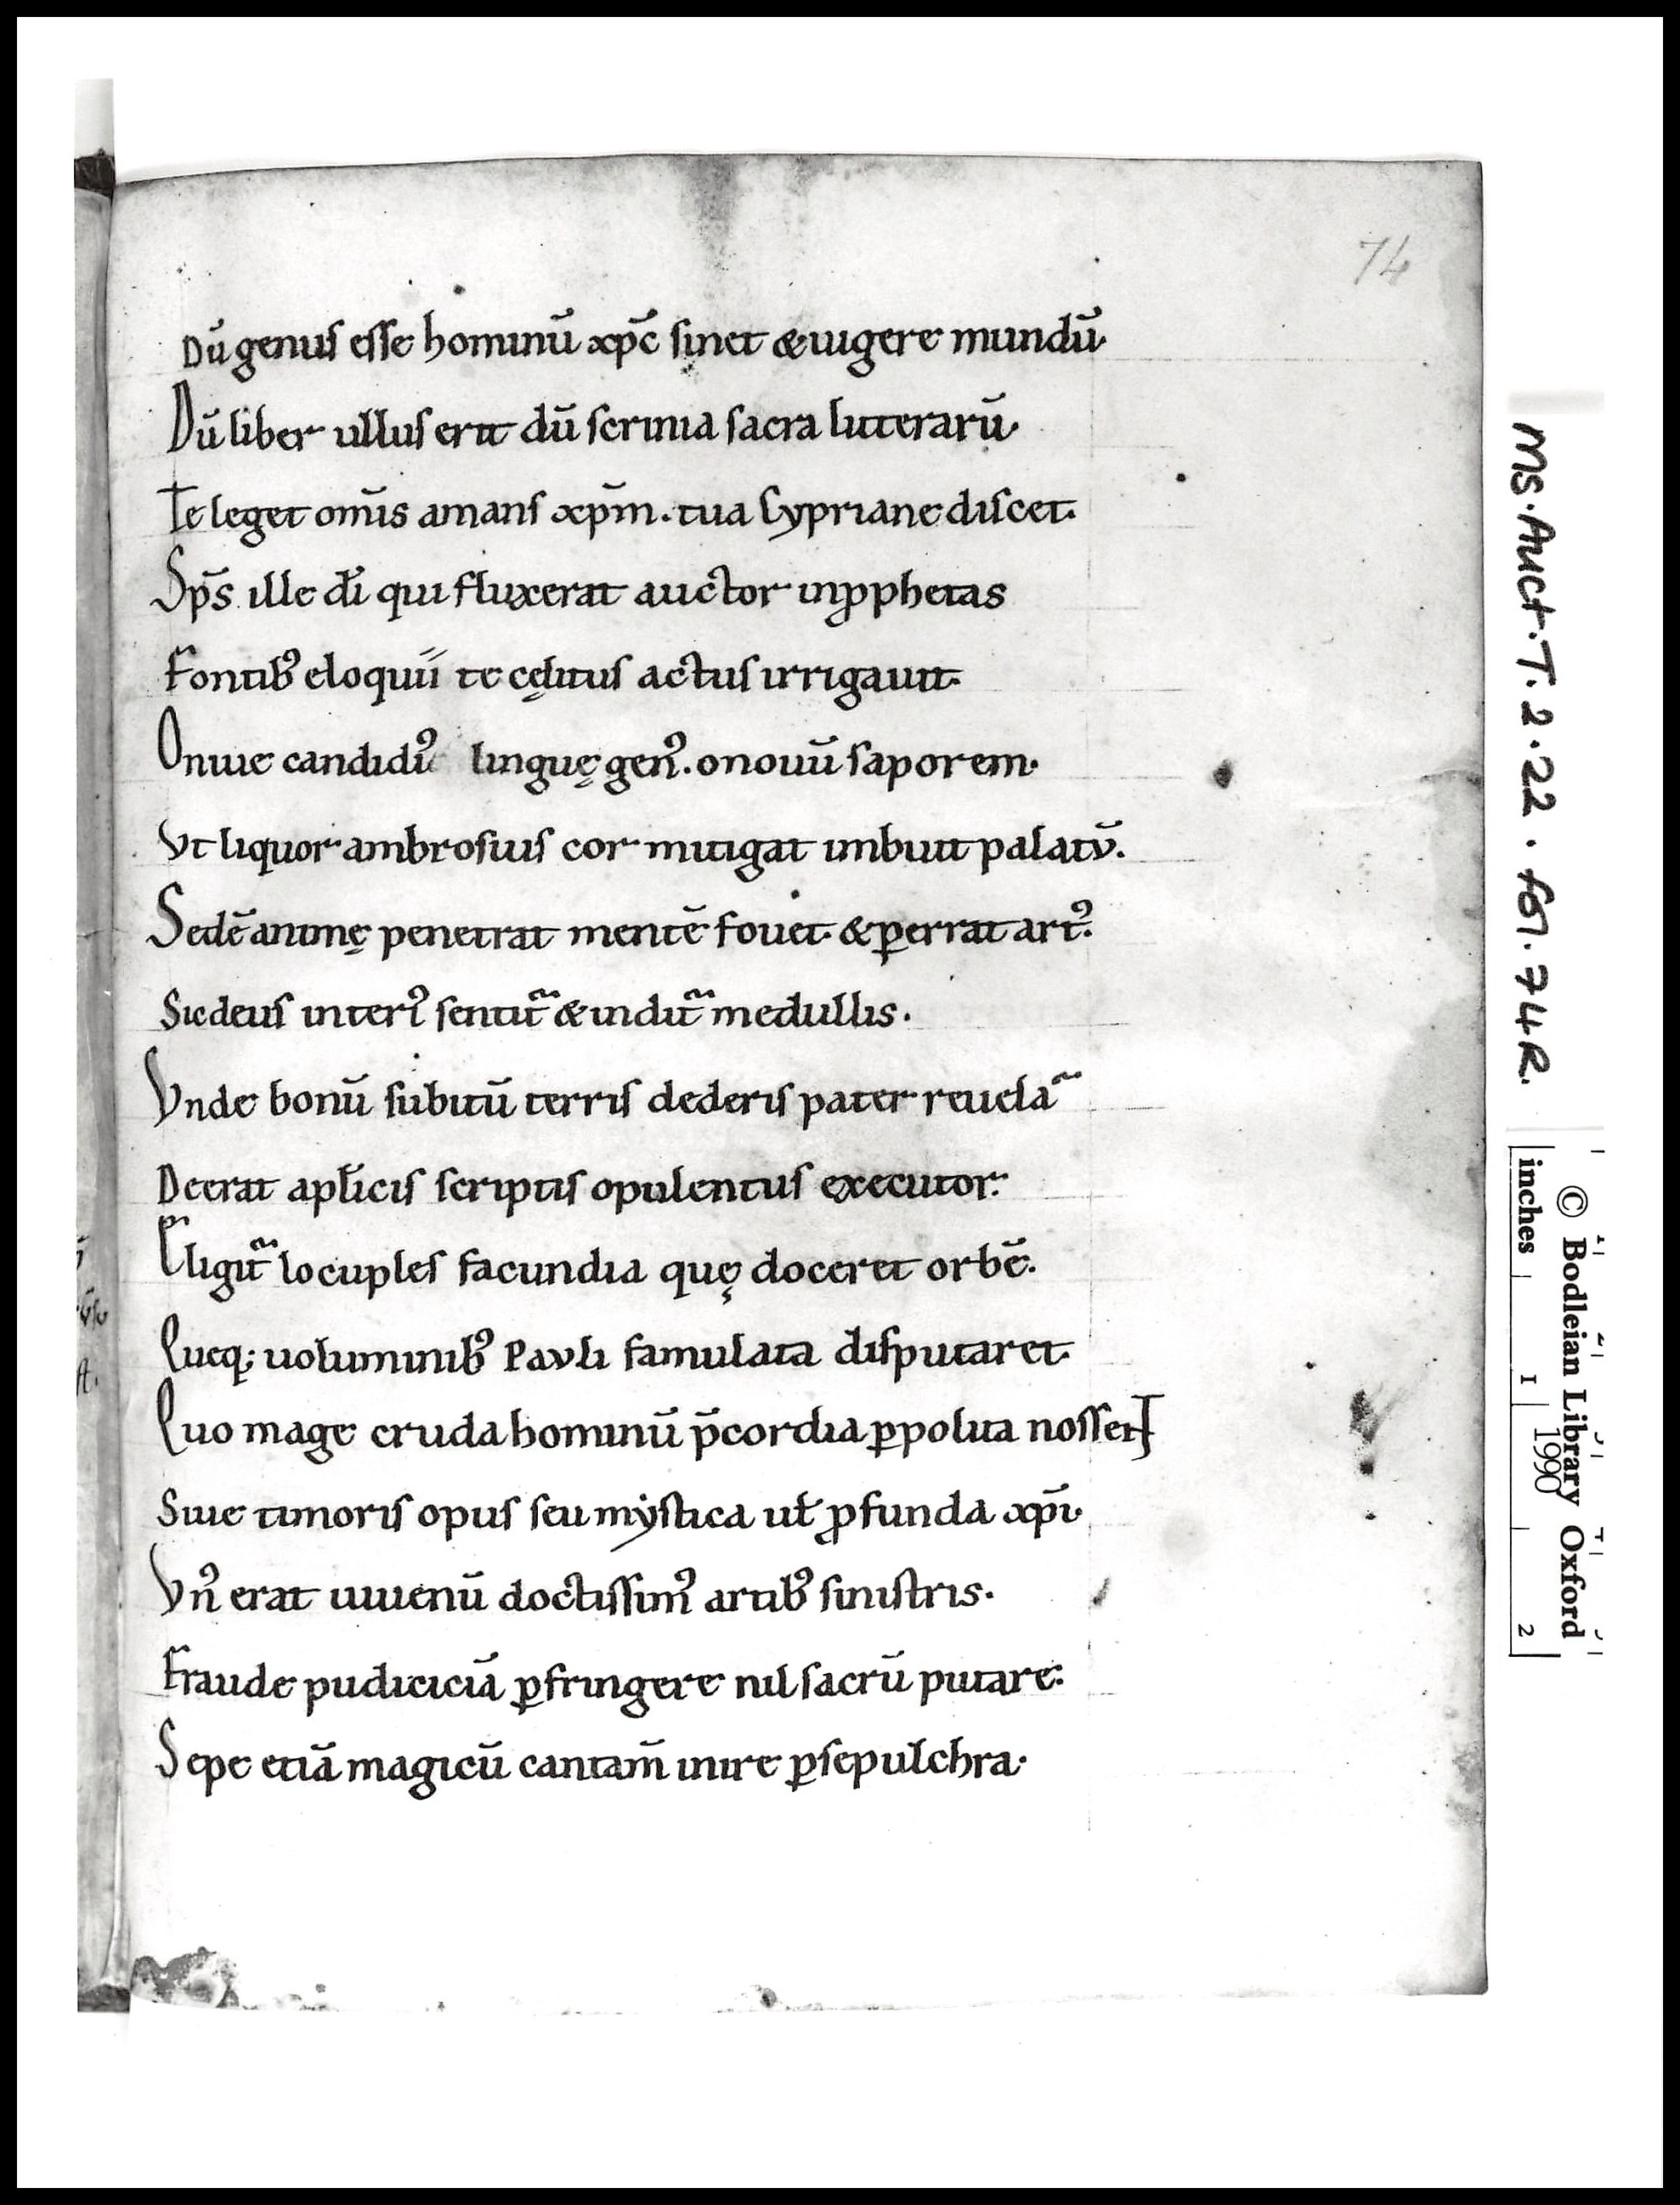 74
Dū genus esse hominū xp̄c sinet & uigere mundū.
Dū liber ullus erit dū scrinia sacra litterarū.
Te leget om̄is amans xp̄m. tua Cypriane discet.
Sp̄s ille dī qui fluxerat auctor in ꝓphetas
Fontibꝰ eloquii te cęlitus actus irrigauit.
O niue candidiꝰ linguę genꝰ. o nouū saporem.
Vt liquor ambrosius cor mitigat imbuit palatū.
Sedē animę penetrat mentē fouet. & ꝑerrat artꝰ.
Sic deus interiꝰ sentit᷑ & indit᷑ medullis.
Vnde bonū subitū terris dederis pater reuela᷑
Deerat apl̄icis scriptis opulentus executor.
Eligit᷑ locuples facundia quę doceret orbē.
Queq; uoluminibꝰ Pauli famulata disputaret.
Quo mage cruda hominū p̄cordia ꝑpolita nossent
Siue timoris opus seu mẏstica ut̄ ꝓfunda xp̄i.
Vnꝰ erat iuuenū doctissimꝰ artibꝰ sinistris.
Fraude pudiciciā ꝑfringere nil sacrū putare.
Sepe etiā magicū cantam̄ inire ꝑ sepulchra.
MS. Auct. T. 2. 22. fol. 74R.
© Bodleian Library Oxford
1990
inches 1 2